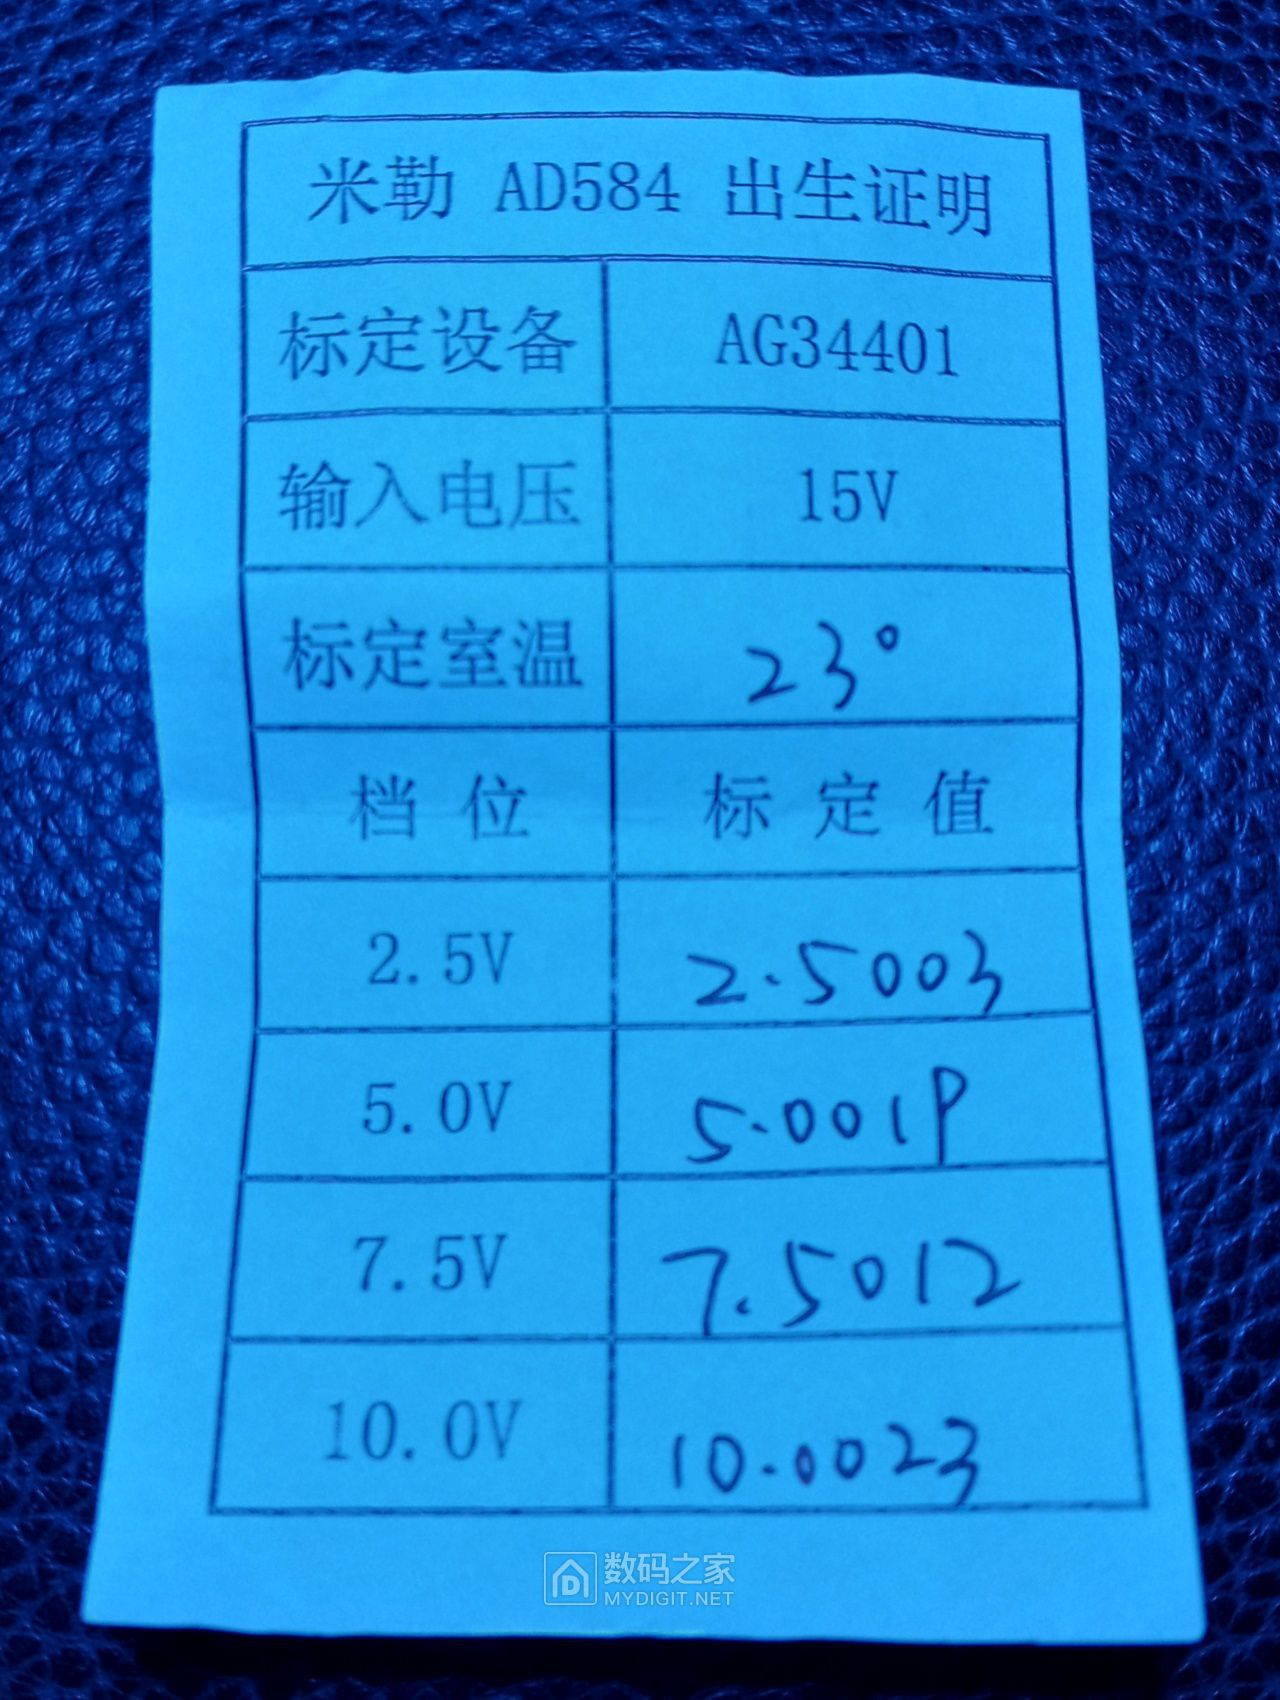 米勒 AD584 出生证明
标定设备 AG34401
输入电压 15V
标定室温 23°
档 位 标 定 值
2.5V 2.5003
5.0V 5.0019
7.5V 7.5012
10.0V 10.0023
数码之家
MYDIGIT.NET